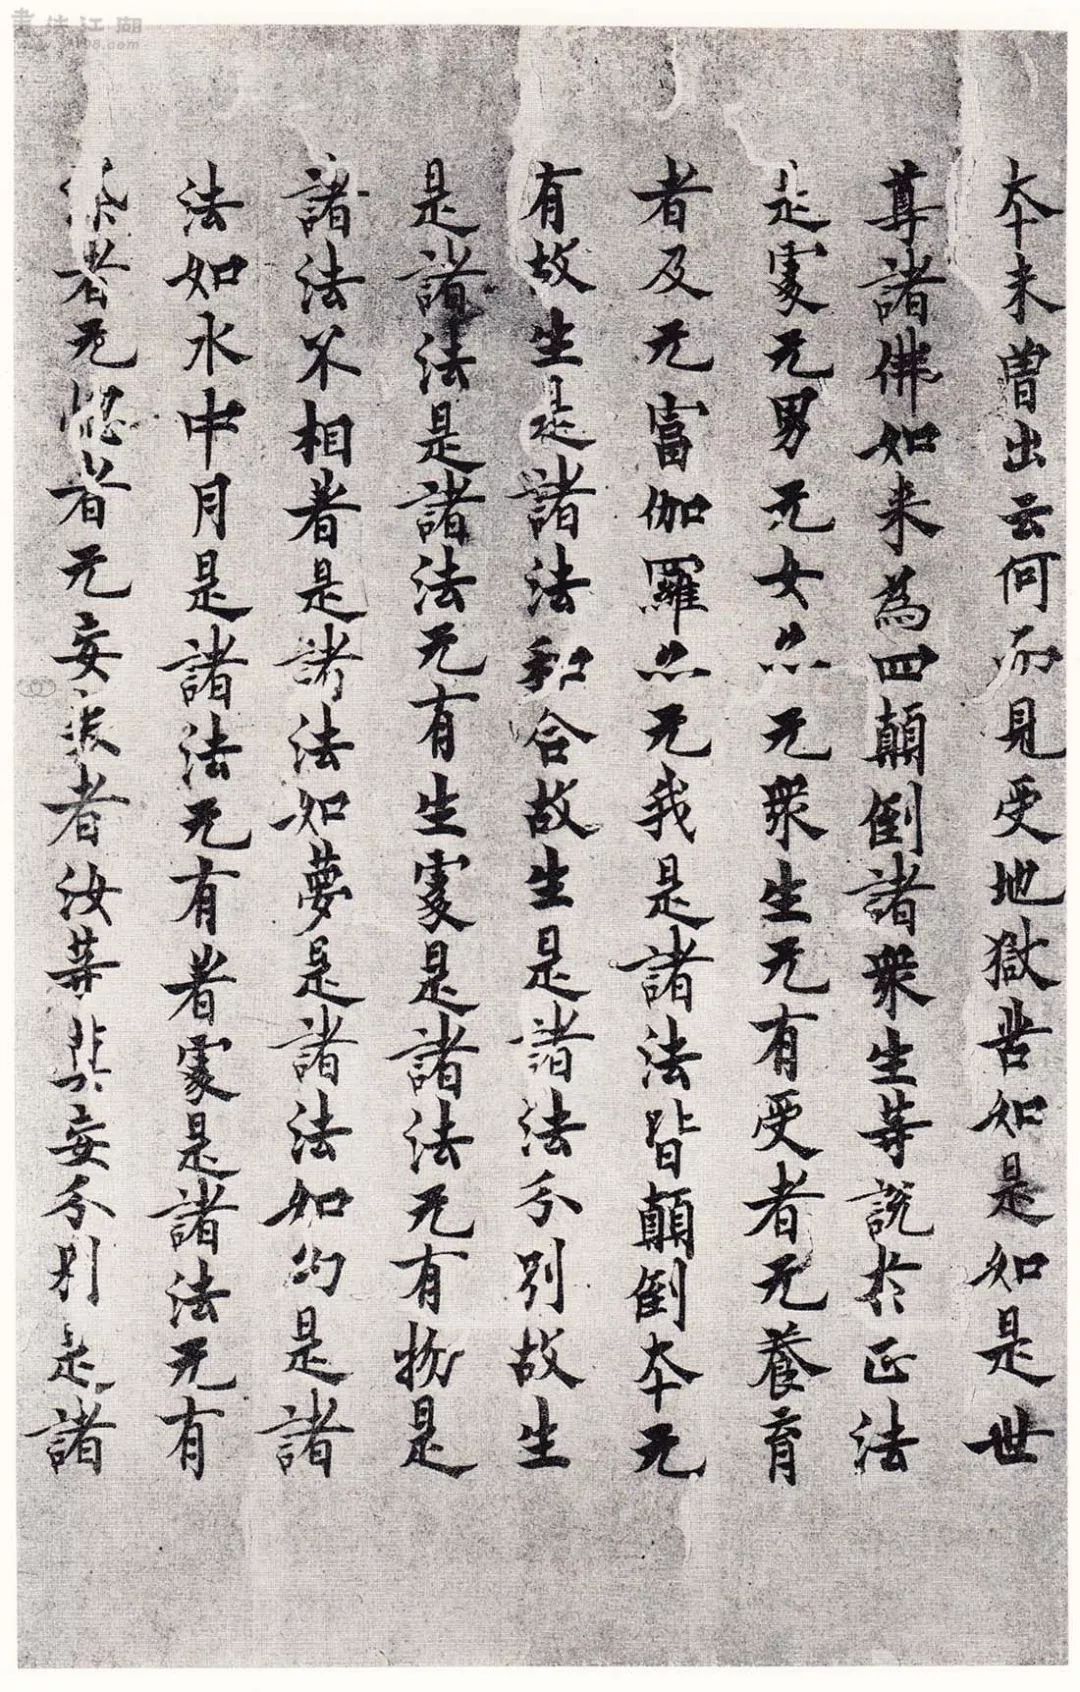 本未曾出云何而見受地獄苦如是如是世
尊諸佛如来為四顛倒諸衆生等説於正法
是處无男无女亦无衆生无有受者无養育
者及无富伽羅亦无我是諸法皆顛倒本无
有故生是諸法和合故生是諸法分別故生
是諸法是諸法无有生處是諸法无有物是
諸法不相著是諸法如夢是諸法如幻是諸
法如水中月是諸法无有著處是諸法无有
染者无怒者无妄癡者汝等莫妄分別是諸
書法江湖